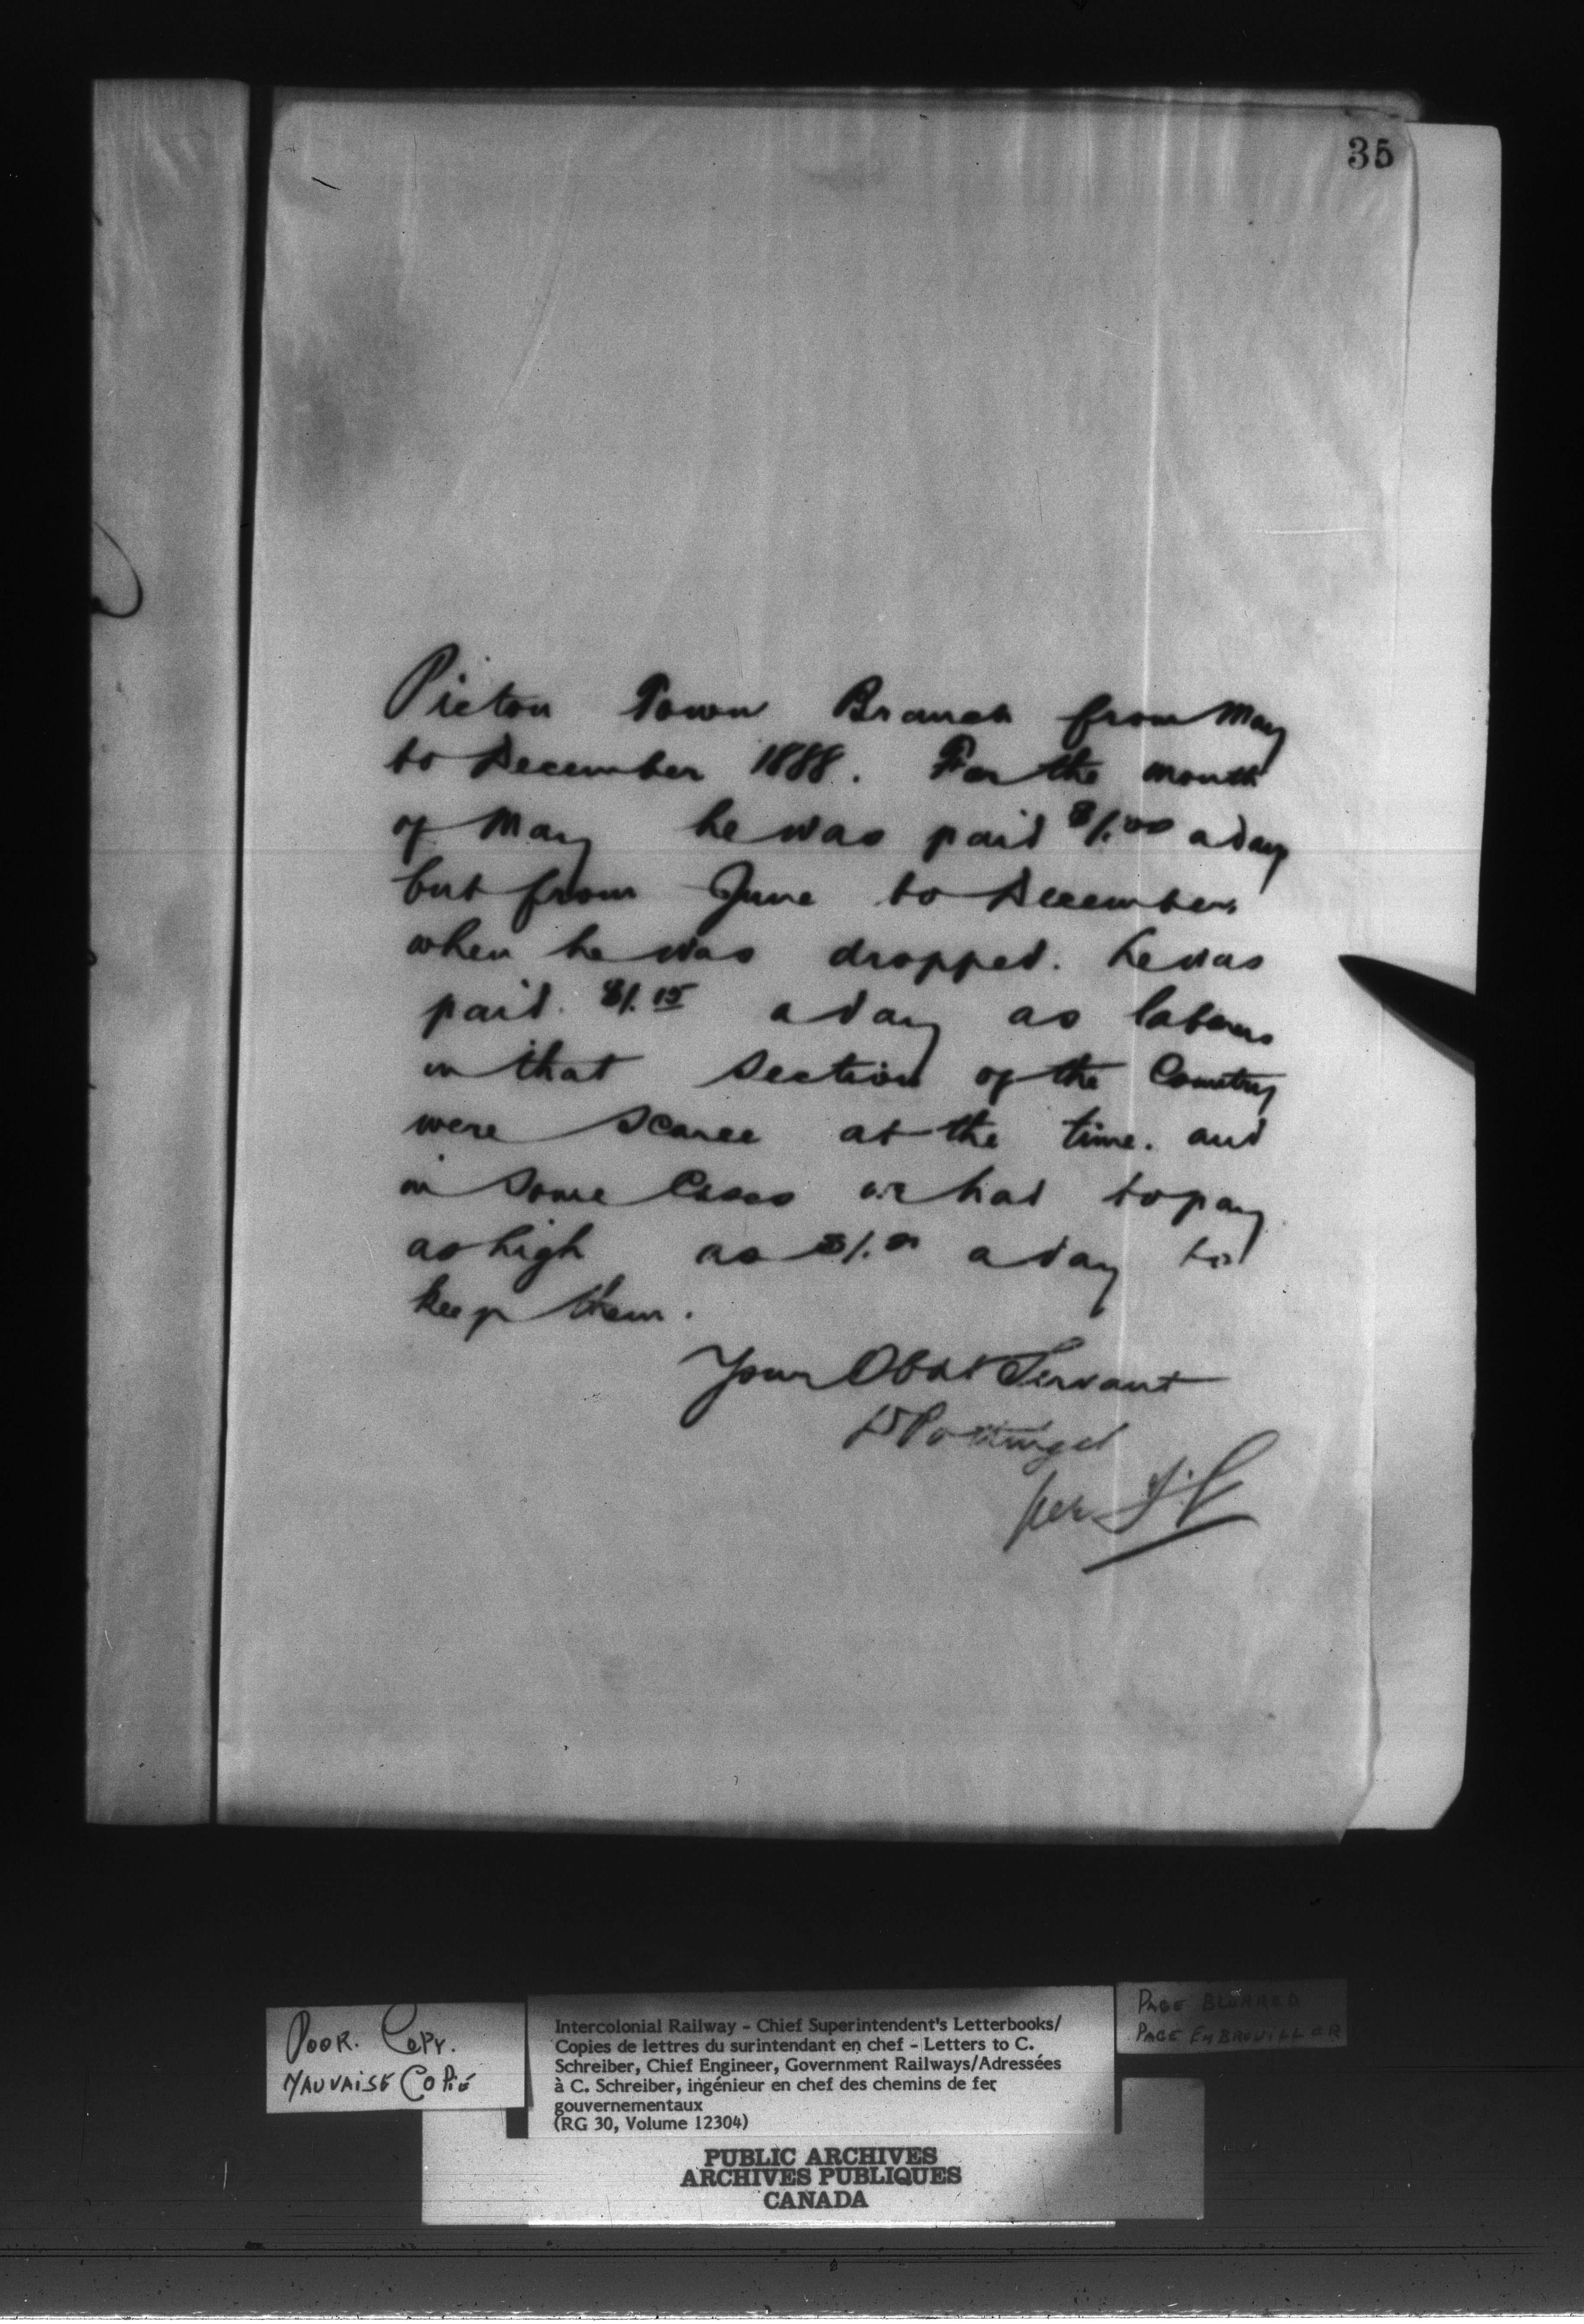 35
Pictou Town Branch from May
to December 1888. For the month
of May he was paid $1.00 a day
but from June to December
when he was dropped. he was
paid. $1.15 a day as labours
in that section of the Country
were scarce at the time. and
in some Cases we had to pay
as high as a day to
keep them.
Your Obdt Servant
D Pottinger
per
POOR. COPY.
MAUVAISE COPIE
Intercolonial Railway - Chief Superintendent's Letterbooks/
Copies de lettres du surintendant en chef - Letters to C.
Schreiber, Chief Engineer, Government Railways/Adressées
à C. Schreiber, ingénieur en chef des chemins de fer
gouvernementaux
(RG 30, Volume 12304)
PAGE BLURRED
PAGE EMBROUILLER
PUBLIC ARCHIVES
ARCHIVES PUBLIQUES
CANADA